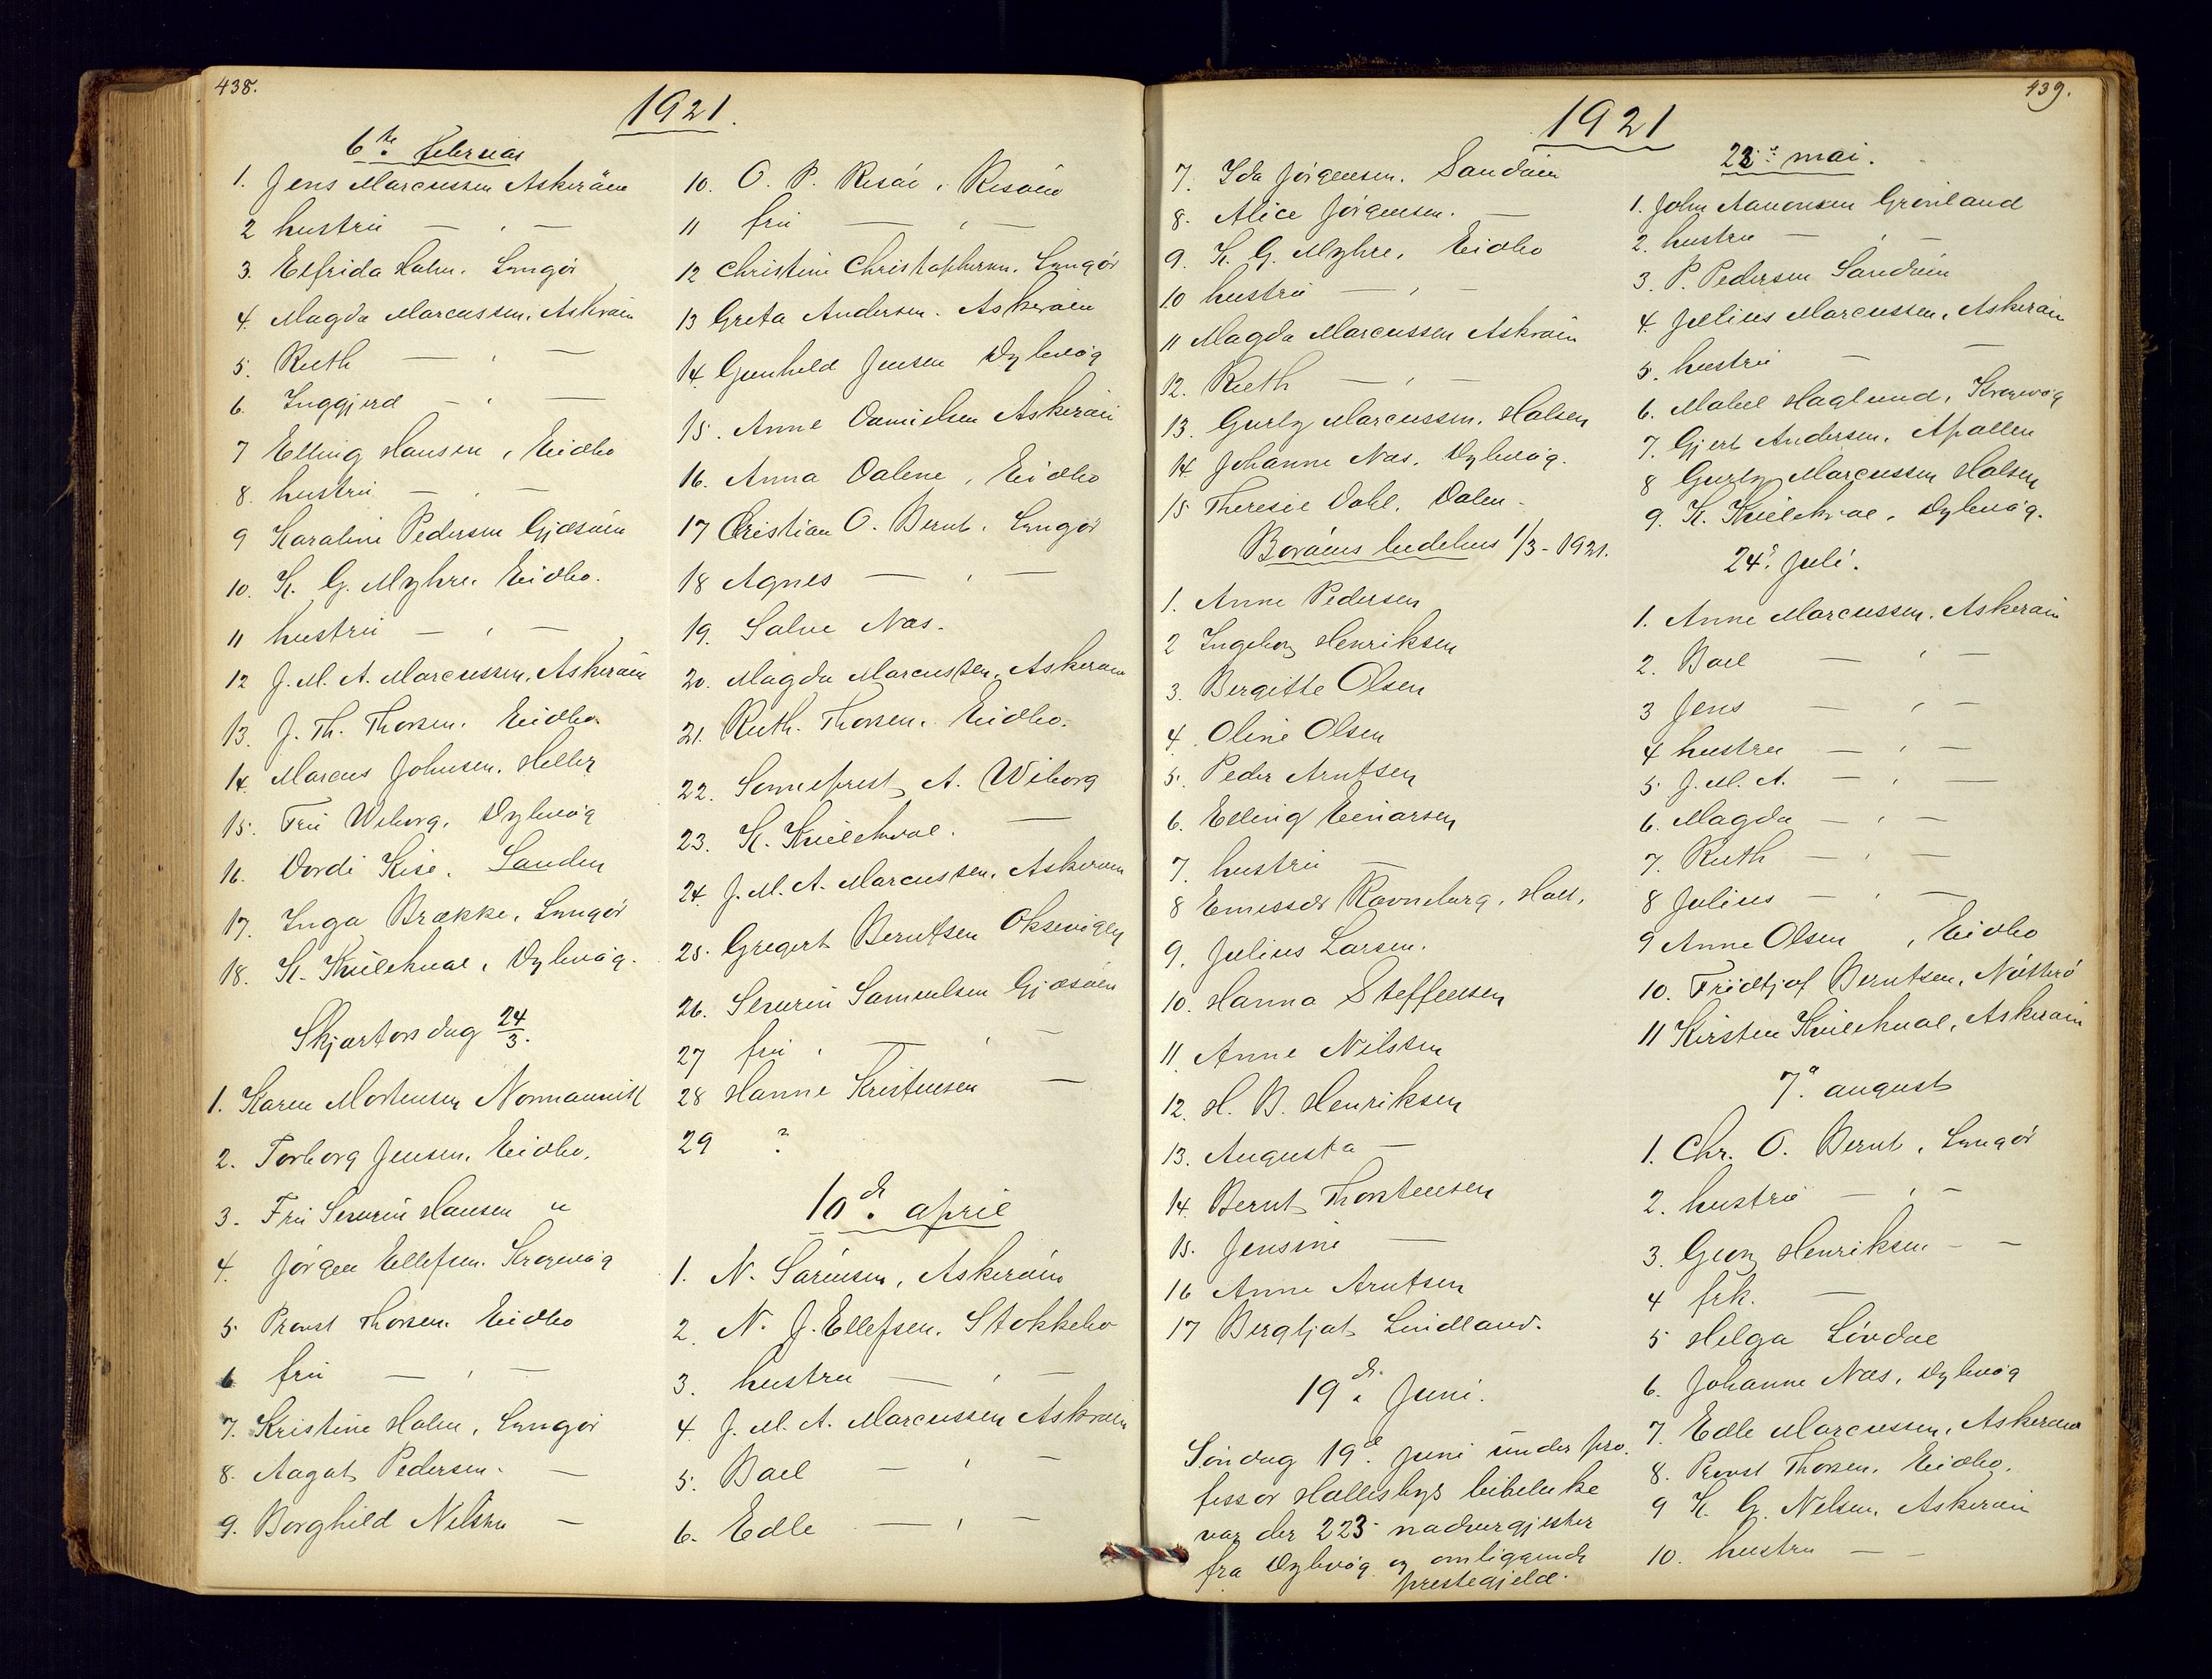 438.
1921.
6te februar
1. Jens Marcussen Askerøien
2 hustru — , —
3. Elfrida Holm. Lyngør
4. Magda Marcussen, Askerøien
5. Ruth — , —
6. Inggjerd — , —
7 Elling Hansen, Eidbo
8. hustru — , —
9 Karoline Pedersen Gjæsøien
10. K. G. Myhre. Eidbo.
11 hustru — , —
12 J. M. A. Marcussen, Askerøien
13. J. Th. Thorsen. Eidbo.
14. Marcus Johnsen.
15. Fru Wiborg. Dybvåg
16. Dordi Kise. Sanden
17. Inga Brække, Lyngør
18. K. Dybvåg.
Skjærtorsdag 24/3.
1. Karen Mortensen
2. Torborg Jensen, Eidbo,
3. Fru Severin Hansen "
4. Jørgen Ellefsen. Krogevåg
5. Provst Thorsen. Eidbo
6 fru — , —
7. Kristine Holm, Lyngør
8. Aagot Pedersen. —
9. Borghild Nilsen —
10. O. P. Risøi, Risøien
11 fru — , —
12 Christine Christophersen. Lyngør
13 Greta Andersen. Askerøien
14. Gunhild Jensen Dybvåg
15. Anne Danielsen Askerøien
16. Anna Dalene, Eidbo
17 Cristian O. Bernt. Lyngør
18 Agnes — , —
19. Salve Næs.
20. Magda Marcussen, Askerøien
21. Ruth. Thorsen. Eidbo.
22. Sogneprest A. Wiborg
23. K. —
24. J. M. A. Marcussen. Askerøien
25. Gregert Berntsen Oksevigen
26. Severin Samuelsen Gjæsøien
27 fru , — , —
28 Hanne Kristensen —
29 ?
10de april
1. N. Sørensen, Askerøien
2. N. J. Ellefsen, Stokkebo
3. hustru — , —
4. J. M. A. Marcussen Askerøien
5. Boel — , —
6. Edle — , —
439.
1921
7. Ida Jørgensen. Sandøien
8. Alice Jørgensen. —
9. K. G. Myhre, Eidbo
10 hustru — , —
11 Magda Marcussen Askerøien
12. Ruth — , —
13. Gurly Marcussen. Holsen
14. Johanne Næs. Dybvåg.
15 Theresie Dahl. Dalen.
Borøens bedehus 1/3-1921.
1. Anne Pedersen
2 Ingeborg Henriksen
3. Bergitte Olsen
4. Oline Olsen
5. Peder Arntsen
6. Elling Einarsen
7. hustru —
8 Emissær Ravneborg, Holt,
9. Julius Larsen.
10. Hanna Steffensen
11. Anne Nilssen
12. H. B. Henriksen
13. Augusta —
14. Bernt Thorstensen
15. Jensine —
16 Anne Arntsen
17 Bergljot Lindland.
19de Juni.
Søndag 19de juni under pro-
fessor Hallesbys bibeluke
var der 223 nadvergjester
fra Dybvåg og omliggende
prestegjeld.
22de mai.
1. John Aanonsen Grønland
2. hustru — , —
3. P. Pedersen Sandøien
4. Julius Marcussen, Askerøien
5. hustru — —
6. Mabel Haglund, Krogevåg
7. Gjert Andersen.
8 Gurly Marcussen Holsen
9. K. Dybvåg.
24de Juli.
1. Anne Marcussen. Askerøien
2. Boel — , —
3 Jens — , —
4 hustru — , —
5. J. M. A. — , —
6. Magda — , —
7. Ruth — , —
8 Julius — , —
9 Anne Olsen , Eidbo
10. Fridtjof Berntsen, Nøtterø
11 Kirsten Askerøien
7de august
1. Chr. O. Bernt, Lyngør
2. hustru — , —
3. Georg Henriksen — —
4 frk. —
5 Helga Løvdal
6. Johanne Næs, Dybvåg
7. Edle Marcussen, Askerøien
8. Provst Thorsen. Eidbo.
9 K. G. Nilsen, Askerøien
10. hustru — —